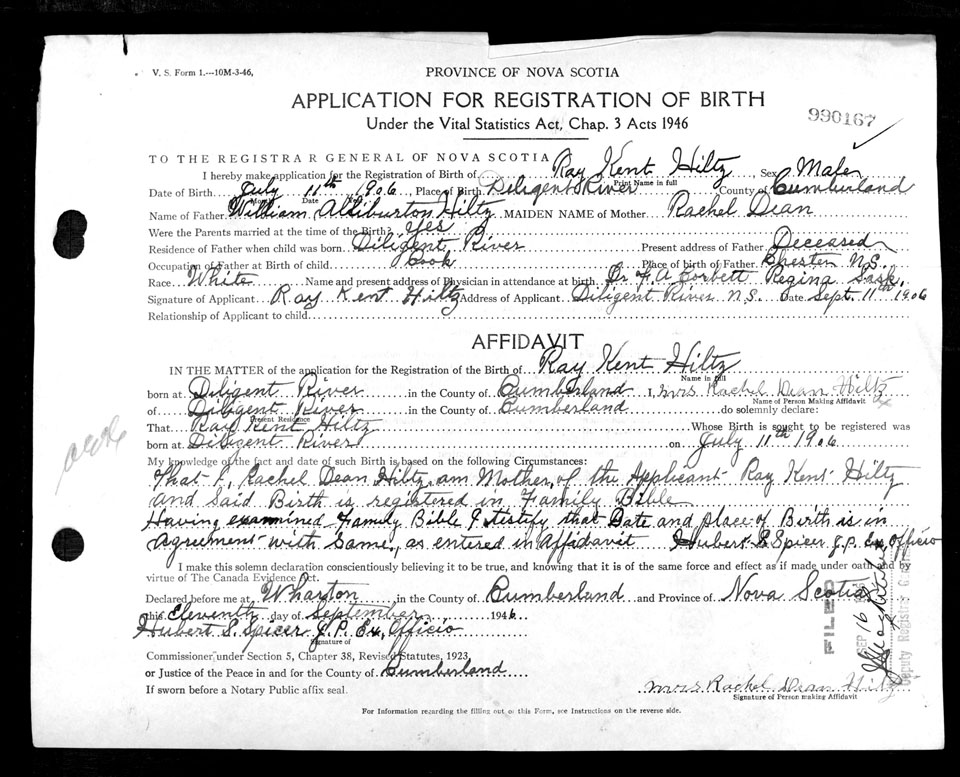 V. S. Form 1.---10M-3-46,
PROVINCE OF NOVA SCOTIA
APPLICATION FOR REGISTRATION OF BIRTH
Under the Vital Statistics Act, Chap. 3 Acts 1946
990167
TO THE REGISTRAR GENERAL OF NOVA SCOTIA
I hereby make application for the Registration of Birth of Ray Kent Hiltz Sex Male
Print Name in full
Date of Birth July 11th 1906 Place of Birth Diligent River County of Cumberland
Month Date Year
Name of Father William Alliburton Hiltz MAIDEN NAME of Mother Rachel Dean
Were the Parents married at the time of the Birth? Yes
Residence of Father when child was born Diligent River Present address of Father Deceased
Occupation of Father at Birth of child Cook Place of birth of Father Chester N.S.
Race White Name and present address of Physician in attendance at birth Dr F. A Corbett Regina Sask.
Signature of Applicant Ray Kent Hiltz Address of Applicant Diligent River N.S. Date Sept. 11th 1906
Relationship of Applicant to child
AFFIDAVIT
IN THE MATTER of the application for the Registration of the Birth of Ray Kent Hiltz
Name in full
born at Diligent River in the County of Cumberland I, Mrs Rachel Dean Hiltz
Name of Person Making Affidavit
of Diligent River in the County of Cumberland do solemnly declare:
Present Residence
That Ray Kent Hiltz Whose Birth is sought to be registered was
born at Diligent River on July 11th 1906
My knowledge of the fact and date of such Birth is based on the following Circumstances:
That I, Rachel Dean Hiltz, am Mother of the Applicant Ray Kent Hiltz
and Said Birth is registered in Family Bible
Having examined Family Bible I testify that Date and place of Birth is in
Agreement with Same, as entered in Affidavit Hubert S Spicer J.P. Ex Officio
I make this solemn declaration conscientiously believing it to be true, and knowing that it is of the same force and effect as if made under oath and by
virtue of The Canada Evidence Act.
Declared before me at Wharton in the County of Cumberland and Province of Nova Scotia
this Eleventh day of September 1946
Hubert S. Spicer J.P. Ex Officio
Signature of
Commissioner under Section 5, Chapter 38, Revised Statutes, 1923,
or Justice of the Peace in and for the County of Cumberland
If sworn before a Notary Public affix seal.
Mrs Rachel Dean Hiltz
Signature of Person making Affidavit
FILED
SEP 16 1946
Deputy Registrar
For Information regarding the filling out of this Form, see Instructions on the reverse side.